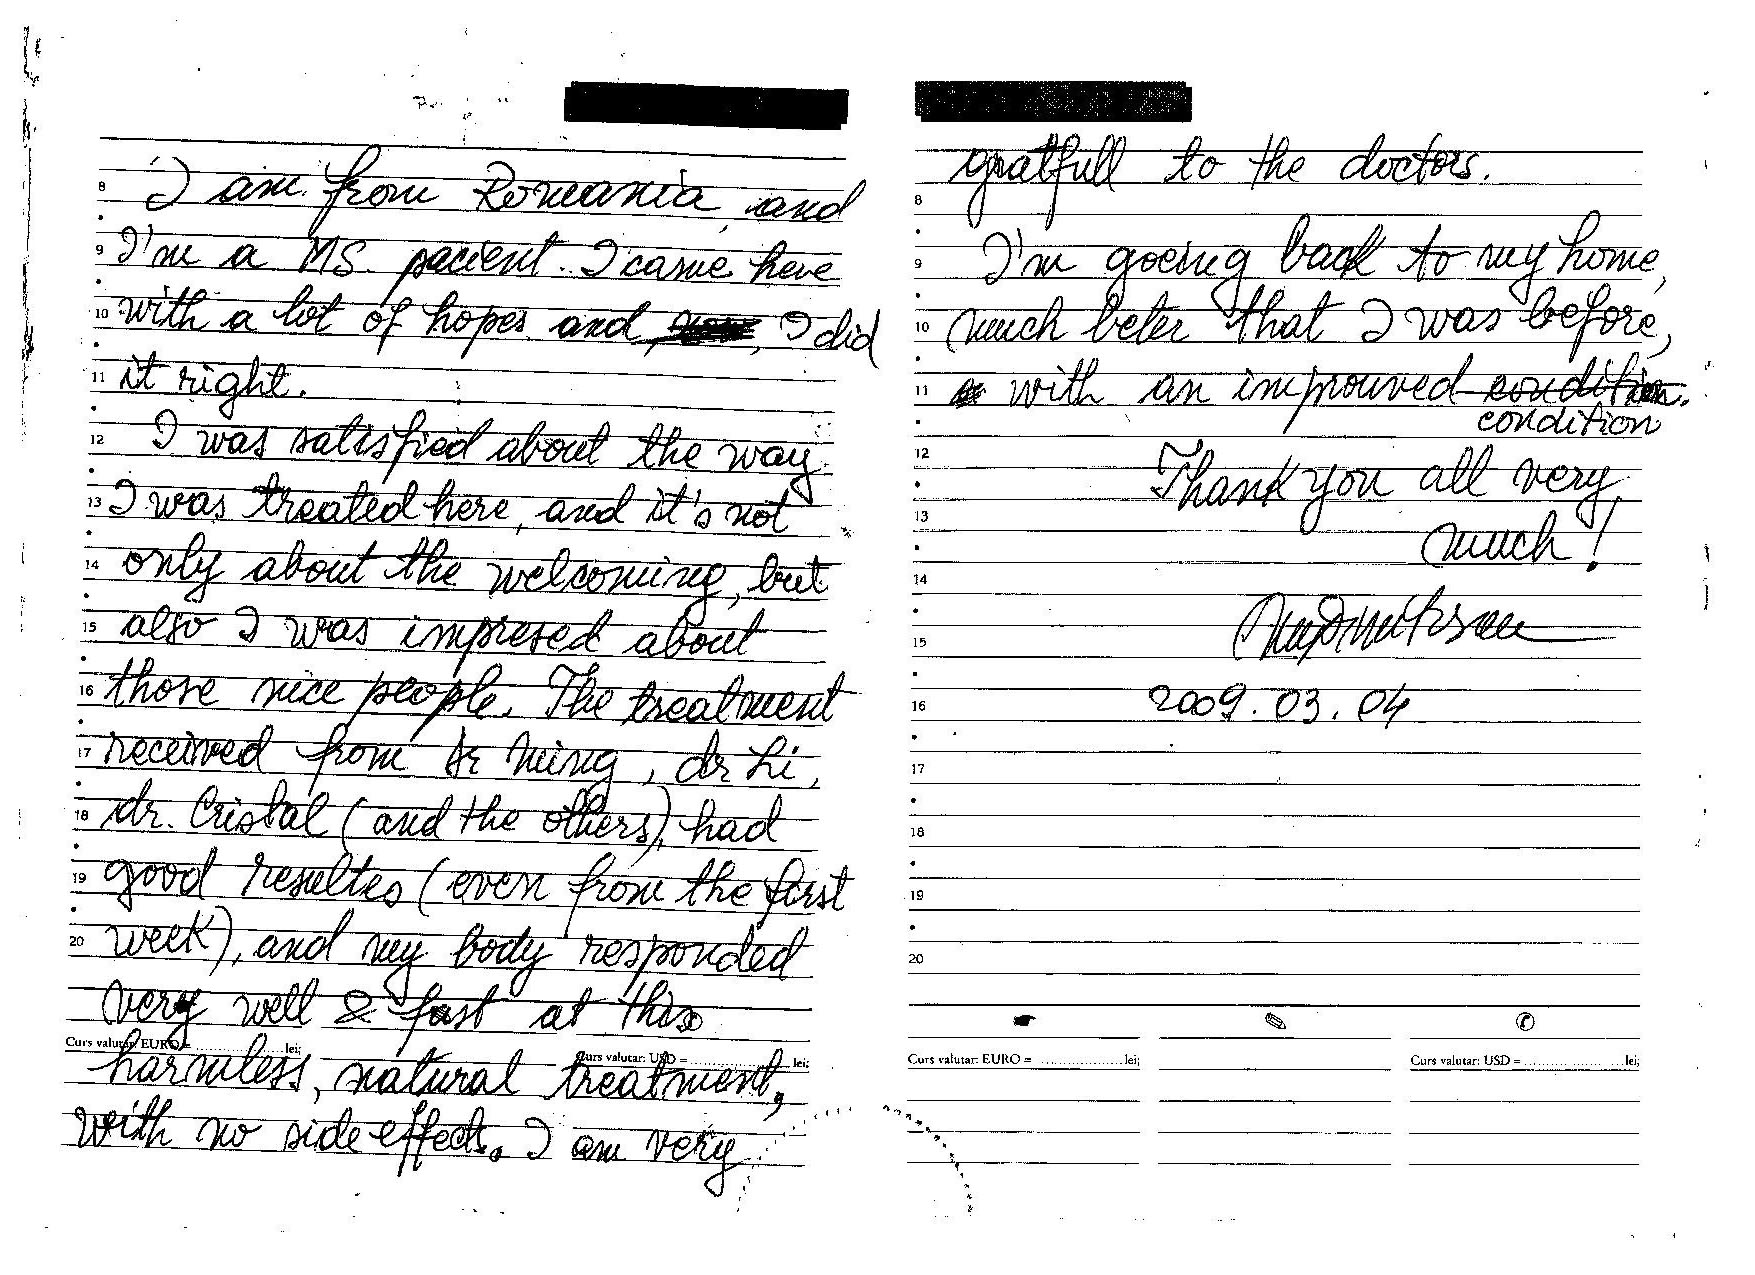 I am from Romania, and
8
9 I'm a MS pacient. I came here
10 with a lot of hopes and I did
11 it right.
12 I was satisfied about the way
13 I was treated here, and it's not
14 only about the welcoming, but
15 also I was impresed about
16 those nice people. The treatment
17 received from dr Ming, dr Li,
18 dr. Cristal (and the others), had
19 good resultes (even from the first
20 week), and my body responded
very well & fast at this
Curs valutar: EURO = lei; Curs valutar: USD = lei;
harmless, natural treatment,
with no side effects. I am very
gratfull to the doctors.
8
9 I'm goeing back to my home,
10 much beter that I was before,
11 with an improuved condition.
condition
12
Thank you all very
13
much!
14
15
16 2009.03.04
17
18
19
20
Curs valutar: EURO = ....................lei; Curs valutar: USD = ....................lei;